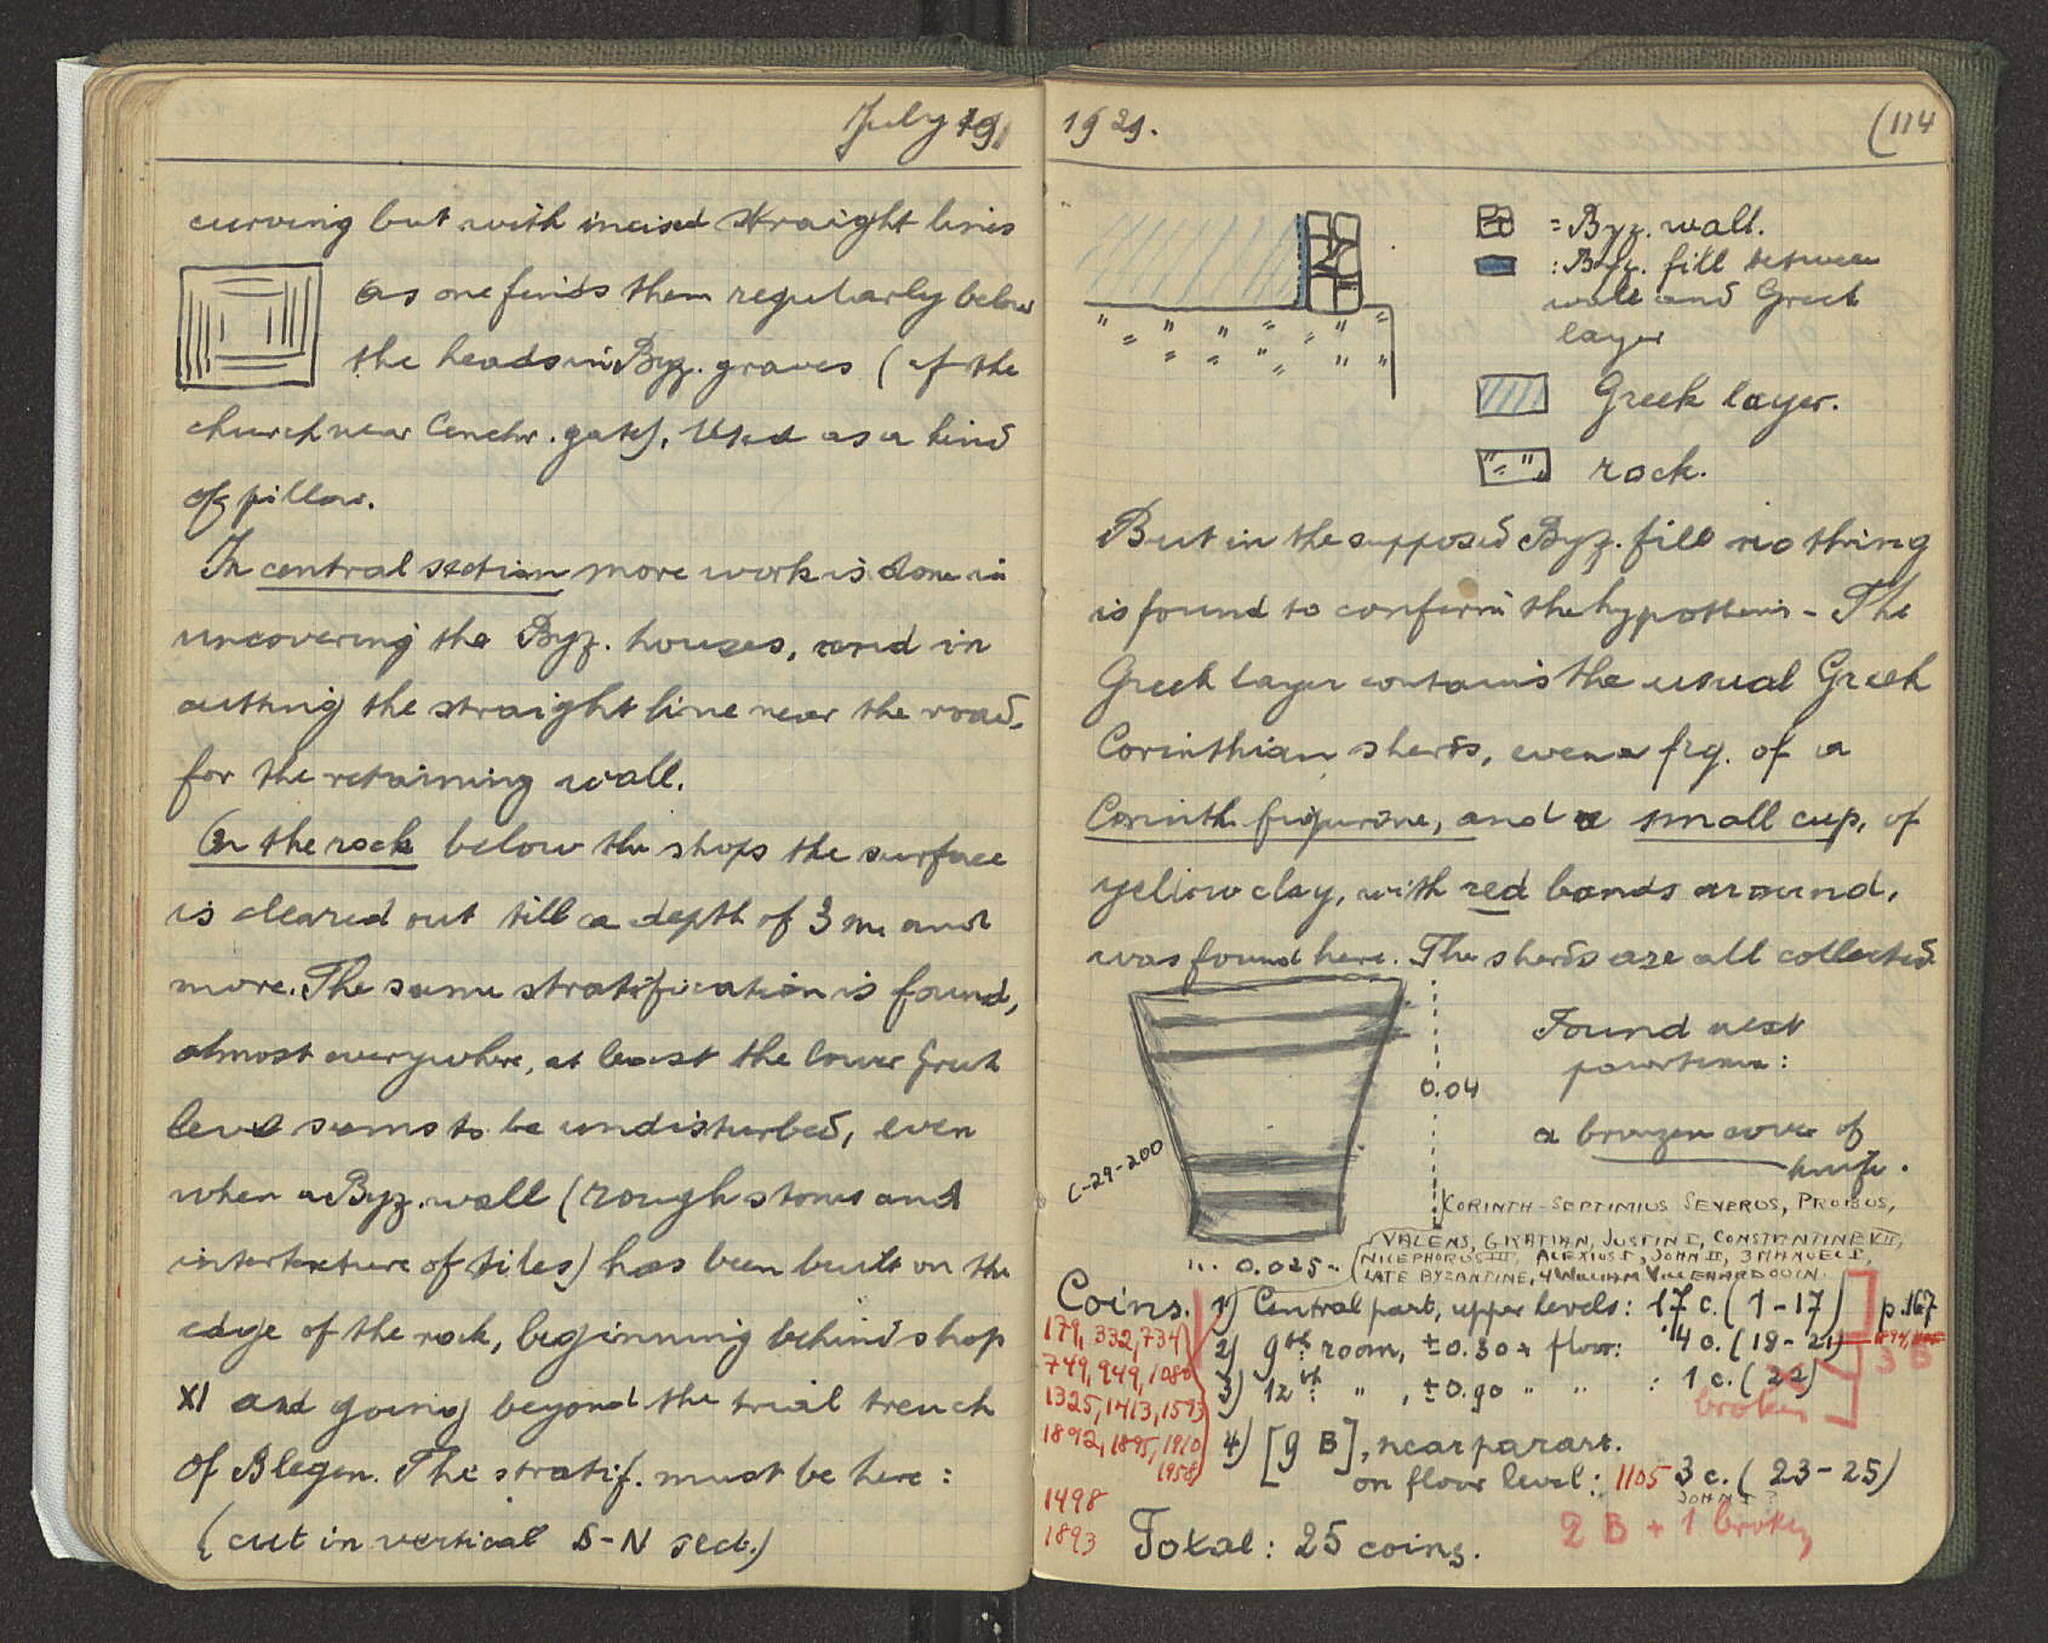 July 19,
curving but with incised straight lines
as one finds them regularly below
the heads in Byz. graves (cf the
church near Cenchr. gate). Used as a kind
of pillow.
In central section more work is done in
uncovering the Byz. houses, and in
cutting the straight line near the road,
for the retaining wall.
On the rock below the shops the surface
is cleared out till a depth of 3 m and
more. The same stratification is found,
almost everywhere, at least the lower Greek
level seems to be undisturbed, even
when a Byz. wall (rough stones and
intertexture of tiles) has been built on the
edge of the rock, beginning behind shop
XI and going beyond the trial trench
of Blegen. The stratif. must be here:
(cut in vertical S-N sect.)
1929.
(114
= Byz. wall.
: Byz. fill between
wall and Greek
layer
Greek layer.
rock.
But in the supposed Byz. fill nothing
is found to confirm the hypothesis - The
Greek layer contains the usual Greek
Corinthian sherds, even a frg. of a
Corinth figurine, and a small cup, of
yellow clay, with red bands around,
was found here. The sherds are all collected
Found next
:
a bronzen cover of
knife.
0.04
C-29-200
0.025
KORINTH - SEPTIMIUS SEVERUS, PROBUS,
VALENS, GRATIAN, JUSTIN I, CONSTANTINE VII,
NICEPHORUS III, ALEXIUS I, JOHN II, 3 MANUEL I,
LATE BYZANTINE, 4 WILLIAM VILLEHARDOUIN.
Coins. 1) Central part, upper levels: 17 c. (1-17) p.167
179, 332, 734
2) 9th room, ±0.30 + floor: 4 c. (18-21)
3 B
749, 949, 1080
3) 12th " , ±0.90 " " : 1 c. (22)
broken
1325, 1413, 1593
1892, 1895, 1910
1958
4) [9 B], near parast.
on floor level: 1105 3 c. (23-25)
JOHN I ?
1498
1893
2 B + 1 broken
Total: 25 coins.